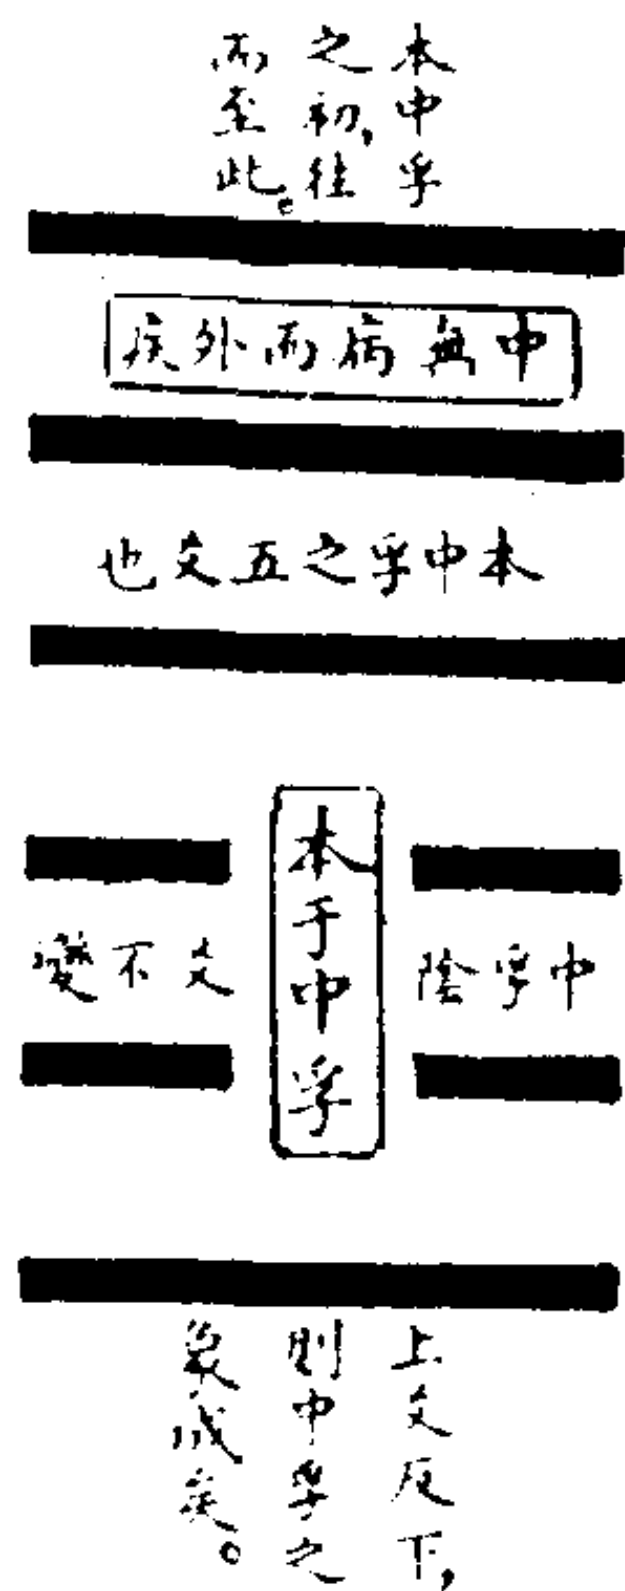 本中孚
之初,往
而至此。
中無病而外疾
本中孚之五爻也
本于中孚
中孚陰
爻不變
上爻反下,
則中孚之
象成矣。